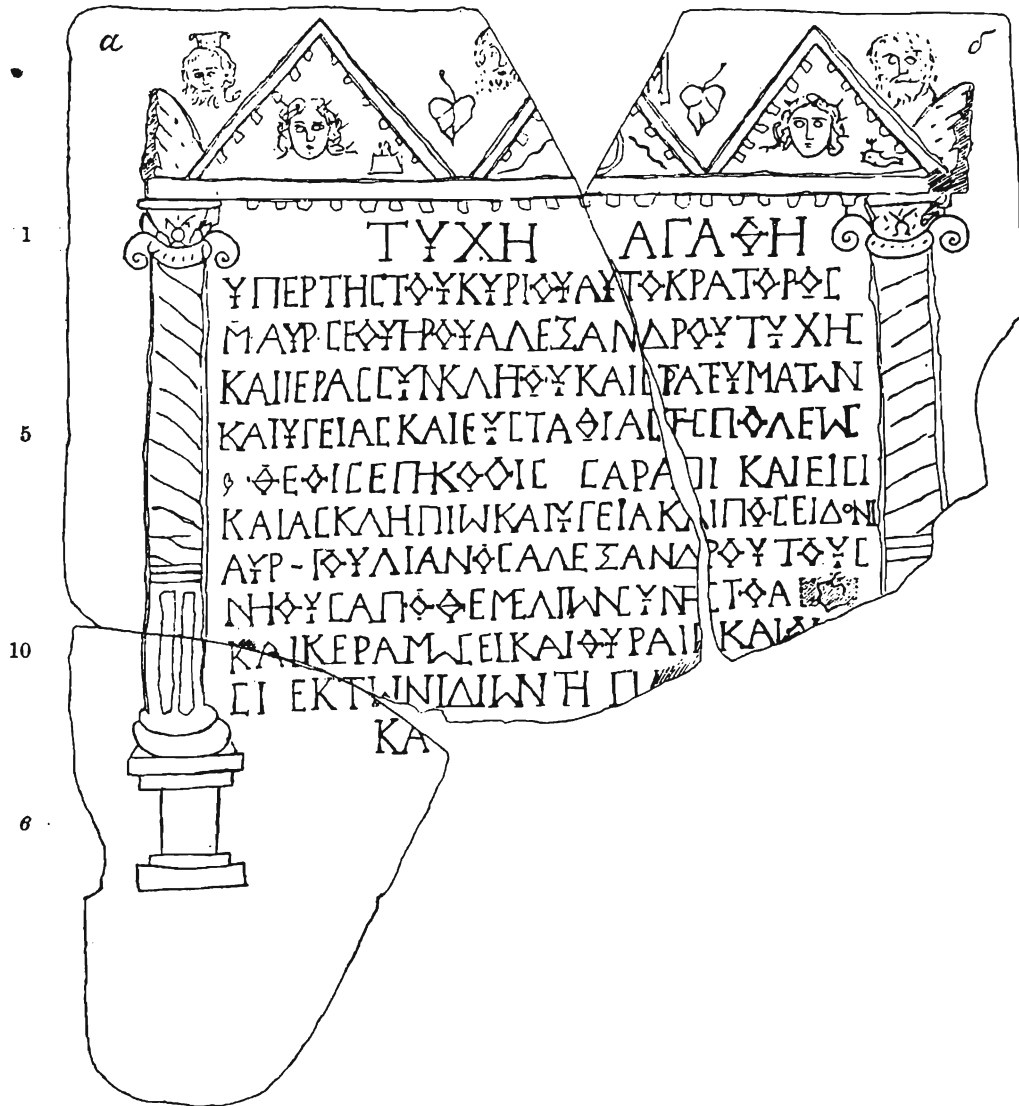 α δ
1 ΤΥΧΗ ΑΓΑΘΗ
ΥΠΕΡΤΗΣΤΟΥΚΥΡΙΟΥΑΥΤΟΚΡΑΤΟΡΟΣ
ΜΑΥΡΣΕΟΥΗΡΟΥΑΛΕΞΑΝΔΡΟΥΤΥΧΗΣ
ΚΑΙΙΕΡΑΣΣΥΝΚΛΗΟΥΚΑΙ
5 ΚΑΙΥΓΕΙΑΣΚΑΙΕΥΣΤΑΘΙΑΣΤΗΣΠΟΛΕΩΣ
ΘΕΟΙΣΕΠΗΚΟΟΙΣ ΣΑΡΑΠΙ ΚΑΙΕΙΣΙ
ΚΑΙΑΣΚΛΗΠΙΩΚΑΙΥΓΕΙΑΚΑΙΠΟΣΕΙΔΟΝΙ
ΑΥΡ-ΙΟΥΛΙΑΝΟΣΑΛΕΞΑΝΔΡΟΥΤΟΥΣ
ΝΗΟΥΣΑΠΟΘΕΜΕΛΙΩΝΣΥΝΗΣΤΟΑ
10 ΚΑΙΚΕΡΑΜΩΣΕΙΚΑΙΘΥΡΑΙΣ ΚΑΙ
ΣΙ ΕΚΤΩΝΙΔΙΩΝΤΗ Π
ΚΑ
в